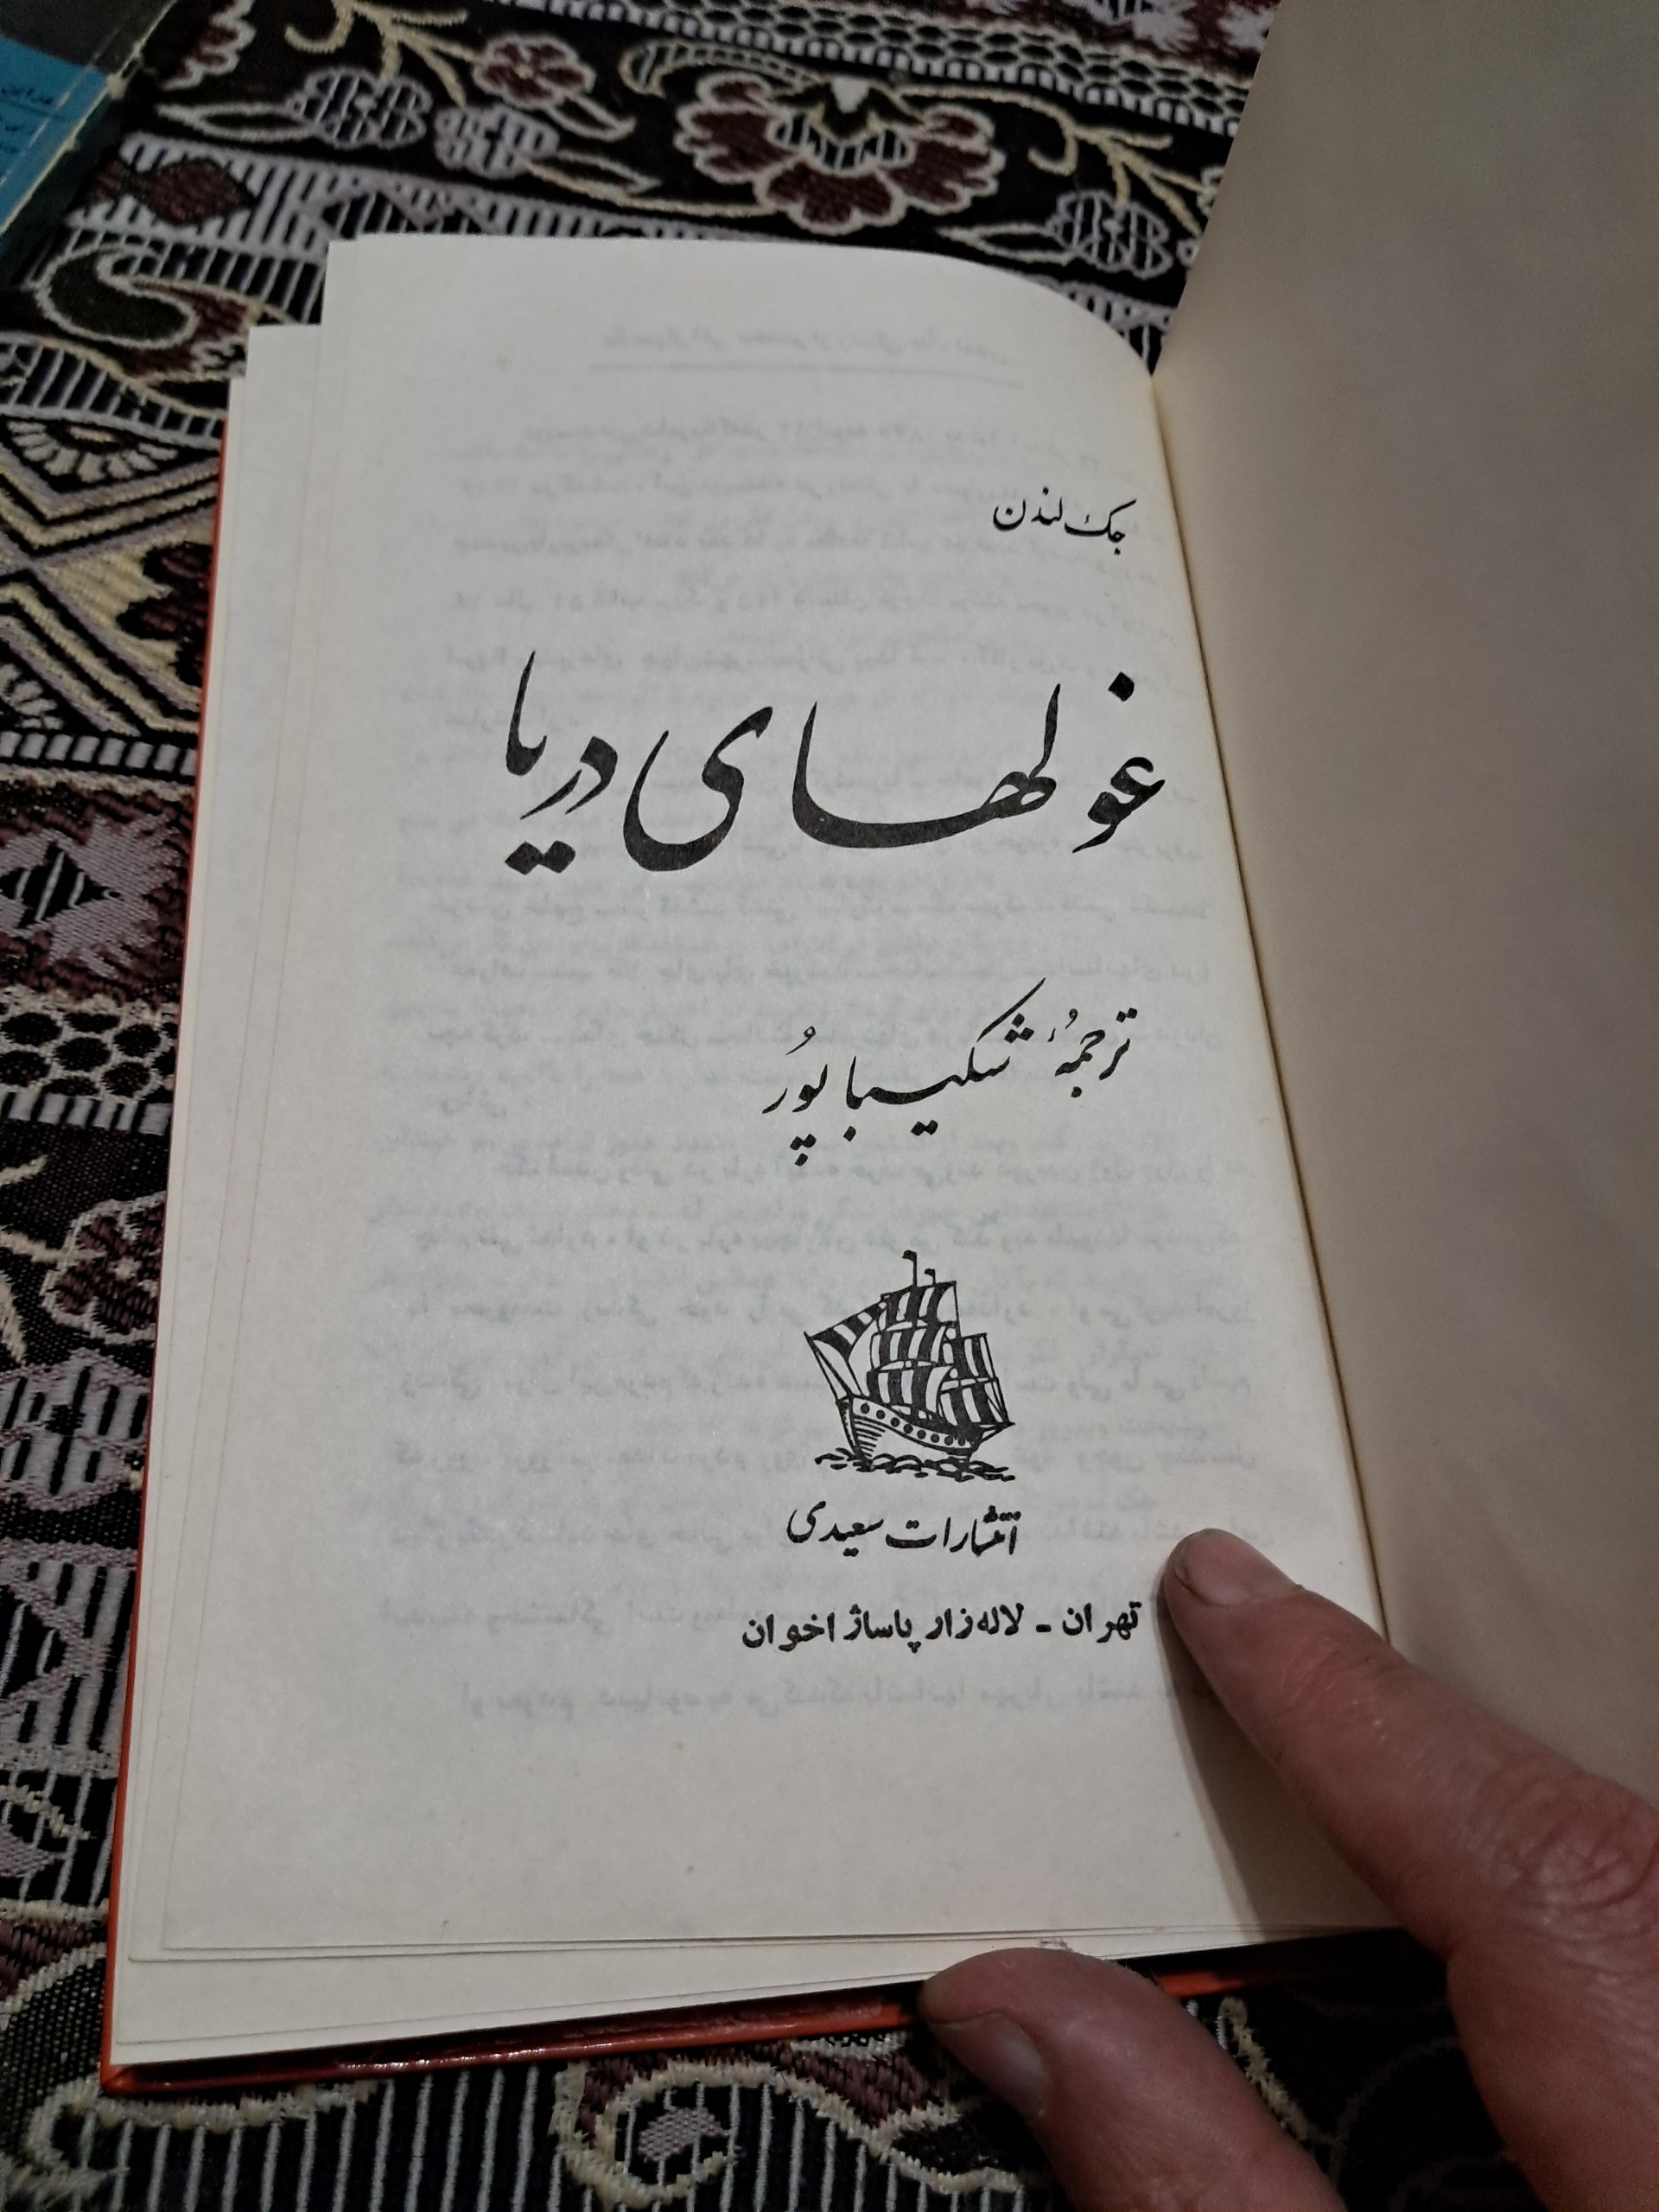 جک لندن
غولهای دریا
ترجمهٔ شکیباپُور
انتشارات سعیدی
تهران - لاله‌زار پاساژ اخوان